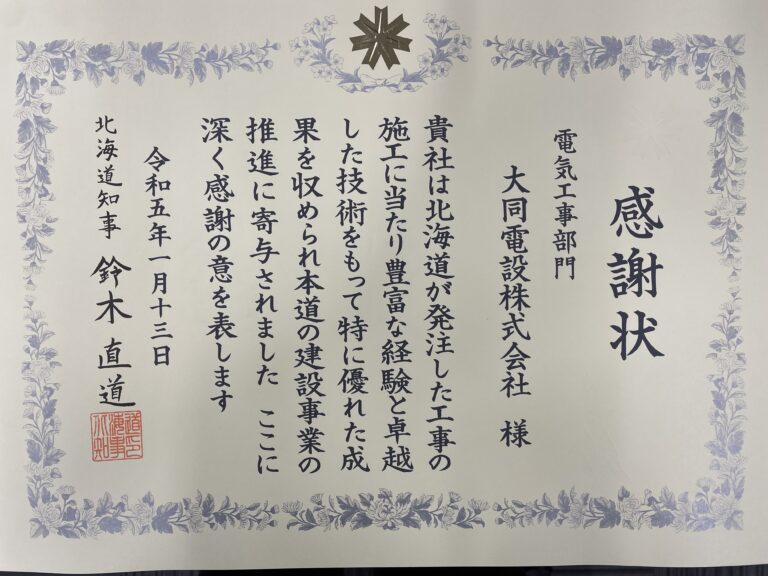 感謝状
電気工事部門
大同電設株式会社 様
貴社は北海道が発注した工事の
施工に当たり豊富な経験と卓越
した技術をもって特に優れた成
果を収められ本道の建設事業の
推進に寄与されました ここに
深く感謝の意を表します
令和五年一月十三日
北海道知事 鈴木直道